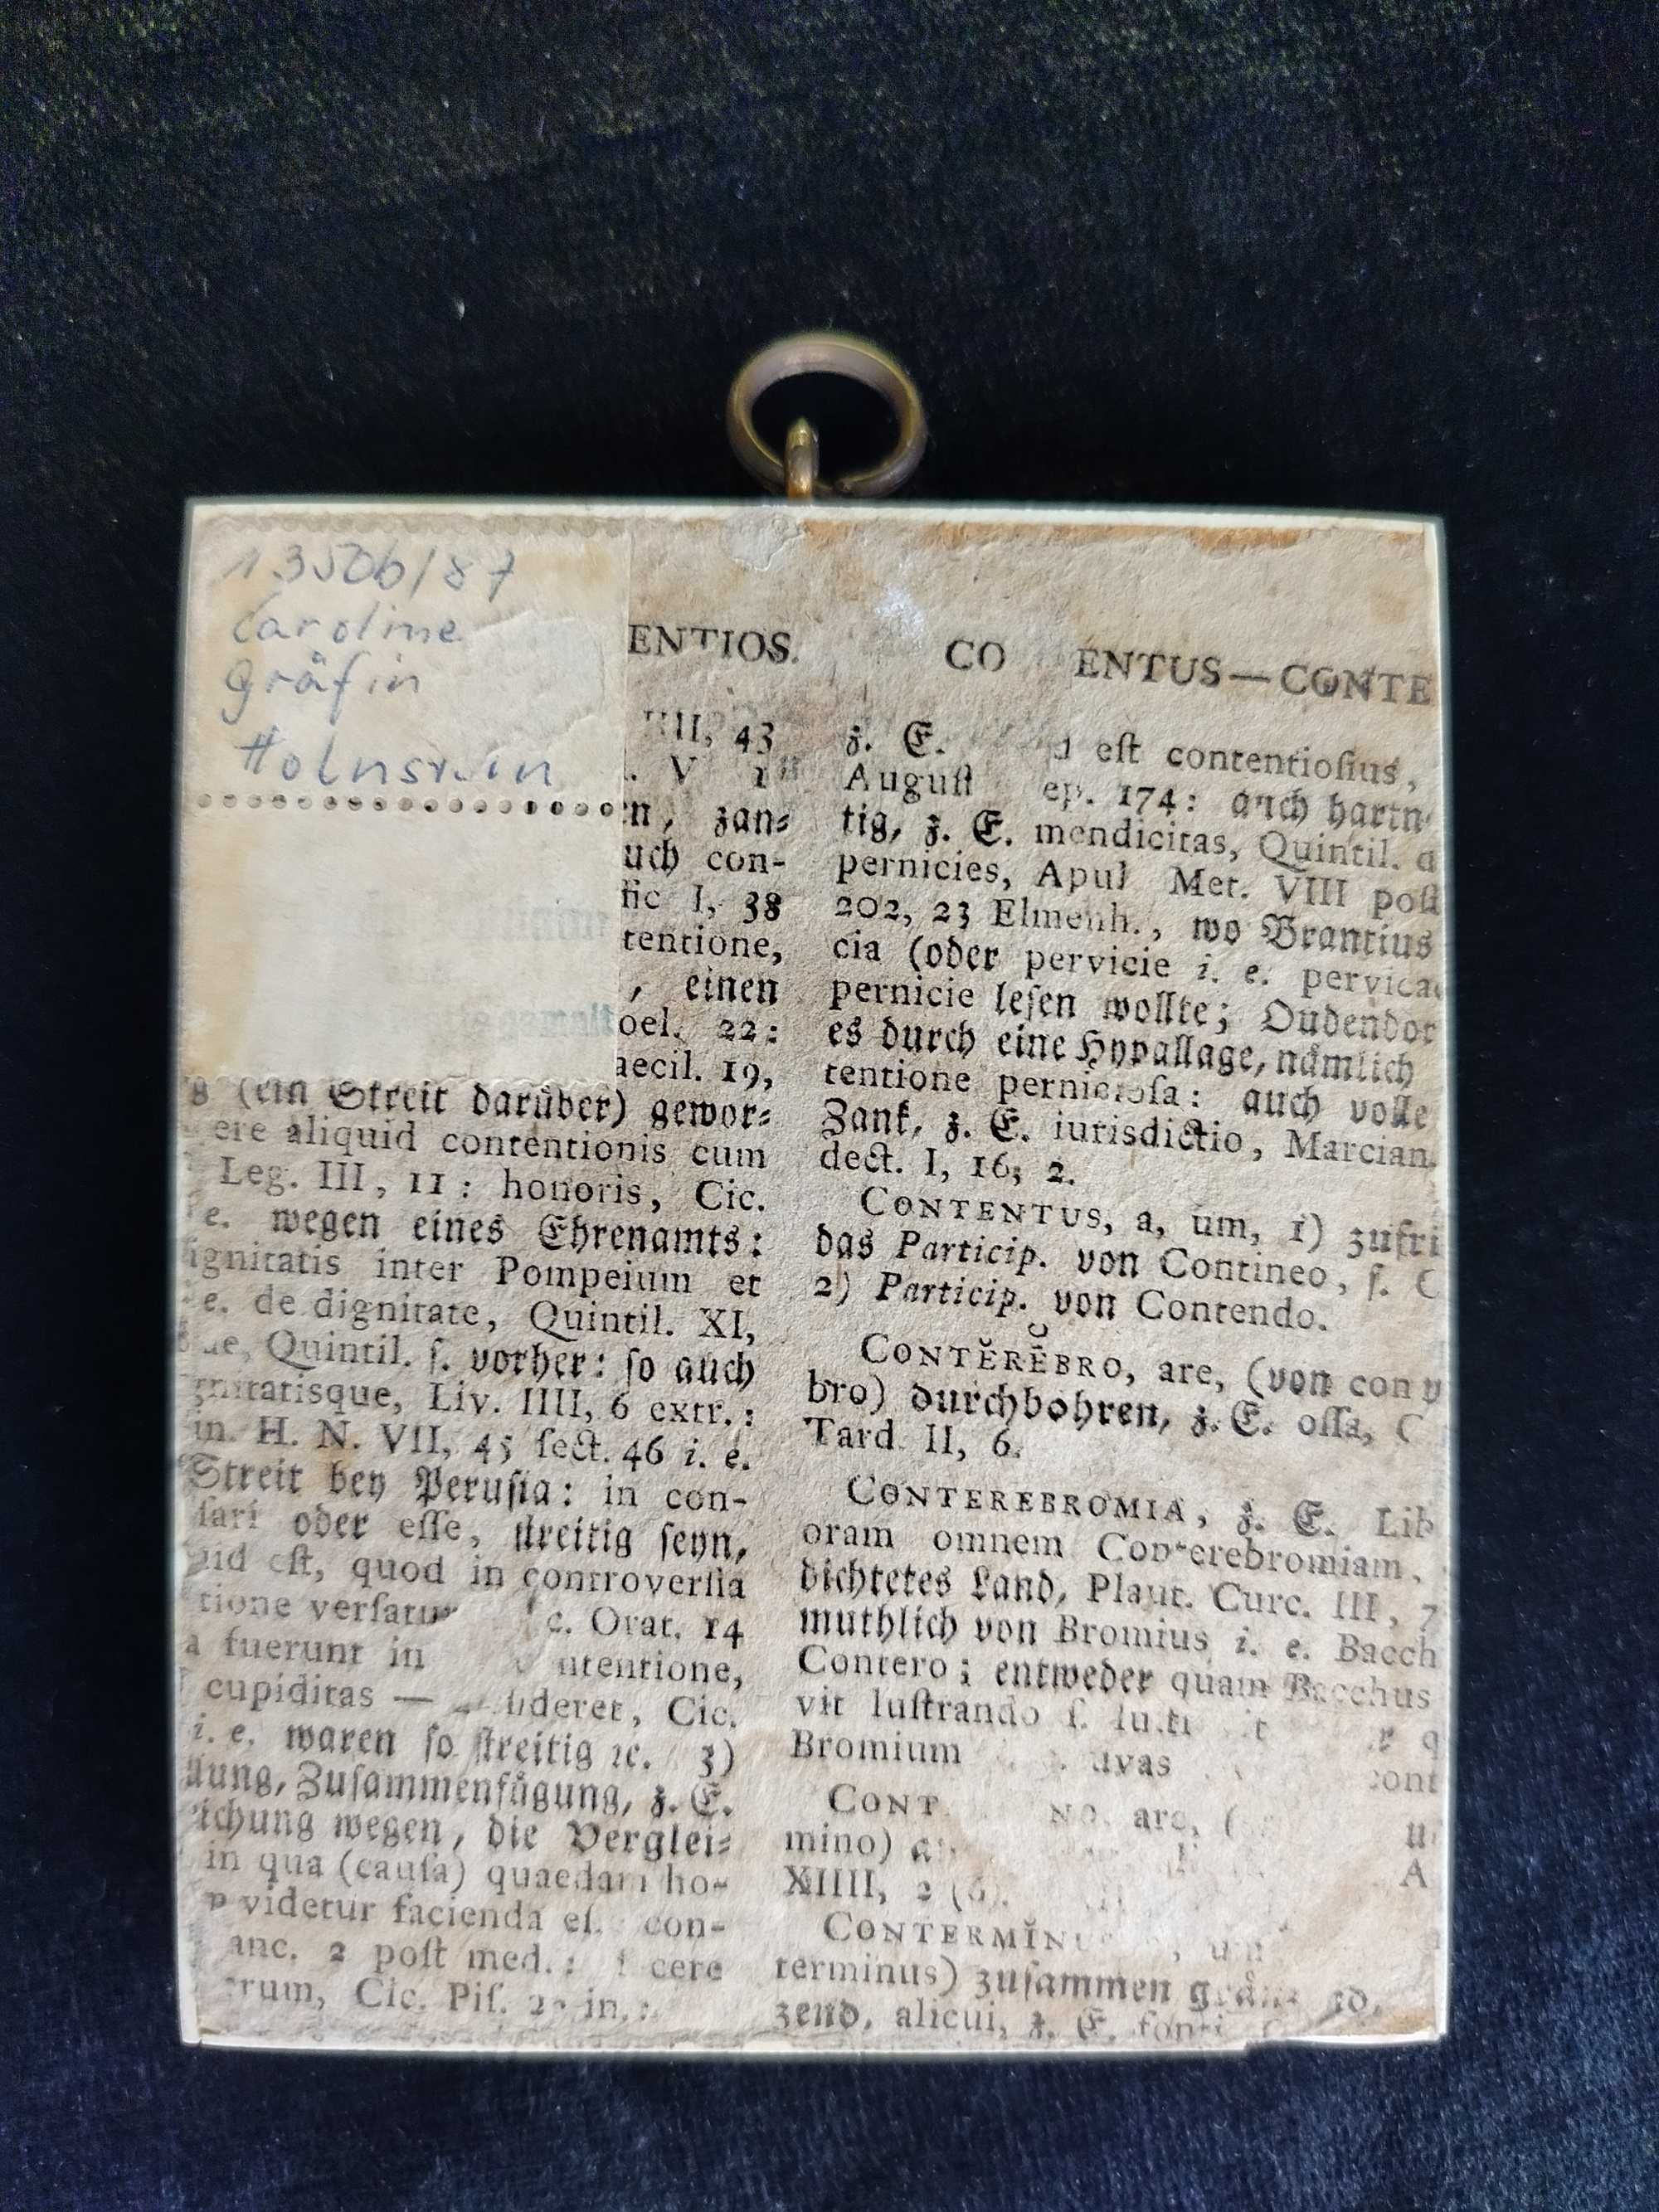 13506/87
Caroline
Gräfin
Holnstein
ENTIOS.
43
zan⸗
uch con-
I, 38
tentione,
, einen
oel. 22:
aecil. 19,
(ein Streit darüber) gewor⸗
ere aliquid contentionis cum
Leg. III, 11: honoris, Cic.
e. wegen eines Ehrenamts:
ignitatis inter Pompeium et
e. de dignitate, Quintil. XI,
Quintil. ſ. vorher: ſo auch
gnitatisque, Liv. IIII, 6 extr.:
in. H. N. VII, 45 ſect. 46 i. e.
Streit bey Peruſia: in con-
ſari oder eſſe, ſtreitig ſeyn,
uid eſt, quod in controverſia
tione verſatur Orat. 14
a fuerunt in ntentione,
cupiditas — Cic.
i. e. waren ſo ſtreitig ꝛc. 3)
nung, Zuſammenfügung, z. E.
ichung wegen, die Verglei⸗
in qua (cauſa) quaedam ho-
videtur facienda con-
anc. 2 poſt med.: cere
rum, Cic. Piſ. in.:
CO ENTUS—CONTE
z. E. eſt contentioſius,
Auguſt ep. 174: auch hartn
tig, z. E. mendicitas, Quintil.
pernicies, Apul Met. VIII poſt
202, 23 Elmenh., wo Brantius
cia (oder pervicie i. e. pervica
pernicie leſen wollte; Oudendor
es durch eine Hypallage, nämlich
tentione pernicioſa: auch volle
Zank, z. E. iurisdictio, Marcian.
dect. I, 16, 2.
CONTENTUS, a, um, 1) zufri
das Particip. von Contineo, ſ. C
2) Particip. von Contendo.
CONTĔRĔBRO, are, (von con
bro) durchbohren, z. E. oſſa, C
Tard. II, 6.
CONTEREBROMIA, z. E. Lib
oram omnem Conterebromiam,
dichtetes Land, Plaut. Curc. III, 7
muthlich von Bromius i. e. Bacch
Contero; entweder quam Bacchus
vit luſtrando ſ.
Bromium uvas cont
CONT NO, are,
mino)
XIIII, 2 (6).
CONTERMĬNU um
terminus) zuſammen
zend, alicui, z. E.